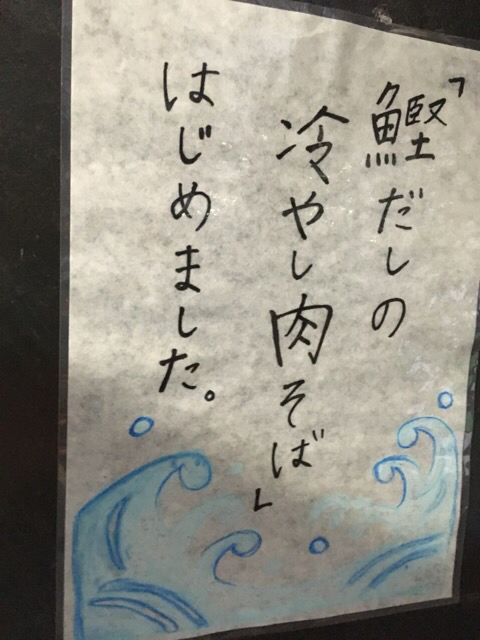 「鰹だしの
冷やし肉そば」
はじめました。